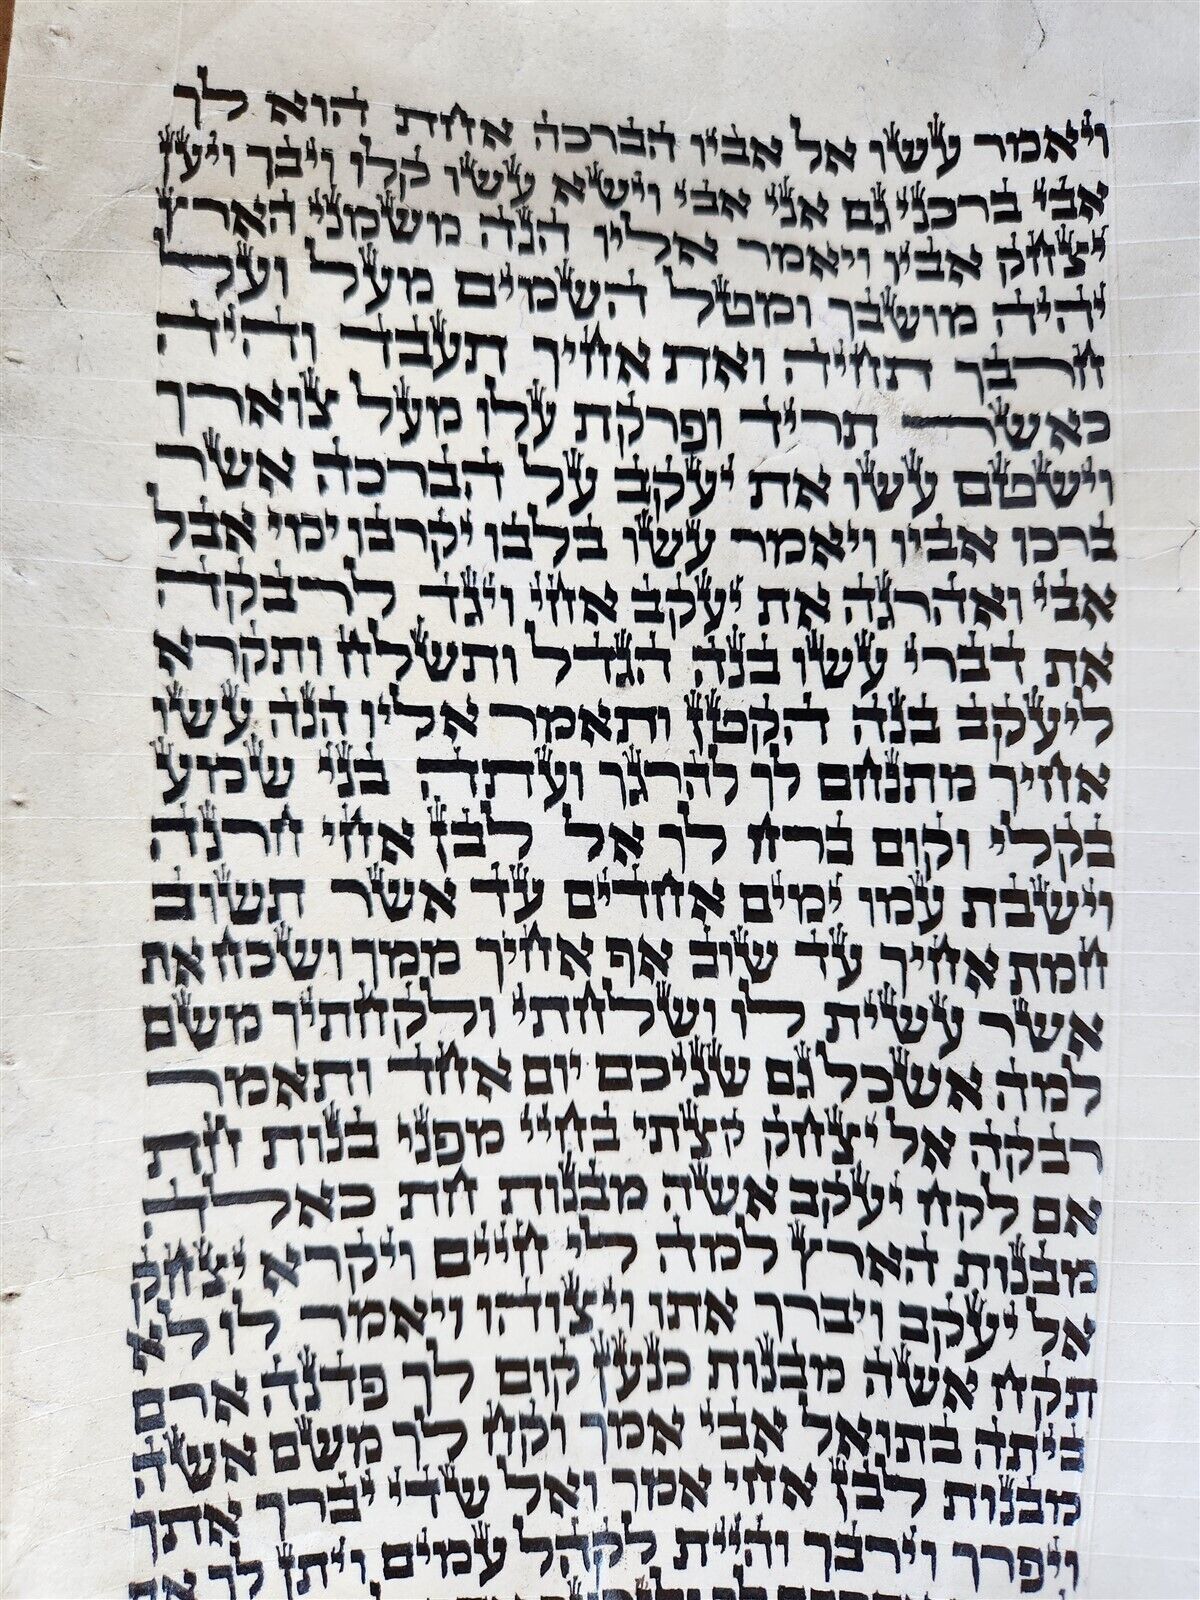 ויאמר עשו אל אביו הברכה אחת הוא לך
אבי ברכני גם אני אבי וישא עשו קלו ויבך ויען
יצחק אביו ויאמר אליו הנה משמני הארץ
יהיה מושבך ומטל השמים מעל ועל
חרבך תחיה ואת אחיך תעבד והיה
כאשר תריד ופרקת עלו מעל צוארך
וישטם עשו את יעקב על הברכה אשר
ברכו אביו ויאמר עשו בלבו יקרבו ימי אבל
אבי ואהרגה את יעקב אחי ויגד לרבקה
את דברי עשו בנה הגדל ותשלח ותקרא
ליעקב בנה הקטן ותאמר אליו הנה עשו
אחיך מתנחם לך להרגך ועתה בני שמע
בקלי וקום ברח לך אל לבן אחי חרנה
וישבת עמו ימים אחדים עד אשר תשוב
חמת אחיך עד שוב אף אחיך ממך ושכח את
אשר עשית לו ושלחתי ולקחתיך משם
למה אשכל גם שניכם יום אחד ותאמר
רבקה אל יצחק קצתי בחיי מפני בנות חת
אם לקח יעקב אשה מבנות חת כאלה
מבנות הארץ למה לי חיים ויקרא יצחק
אל יעקב ויברך אתו ויצוהו ויאמר לו לא
תקח אשה מבנות כנען קום לך פדנה ארם
ביתה בתואל אבי אמך וקח לך משם אשה
מבנות לבן אחי אמך ואל שדי יברך אתך
ויפרך וירבך והיית לקהל עמים ויתן לך את